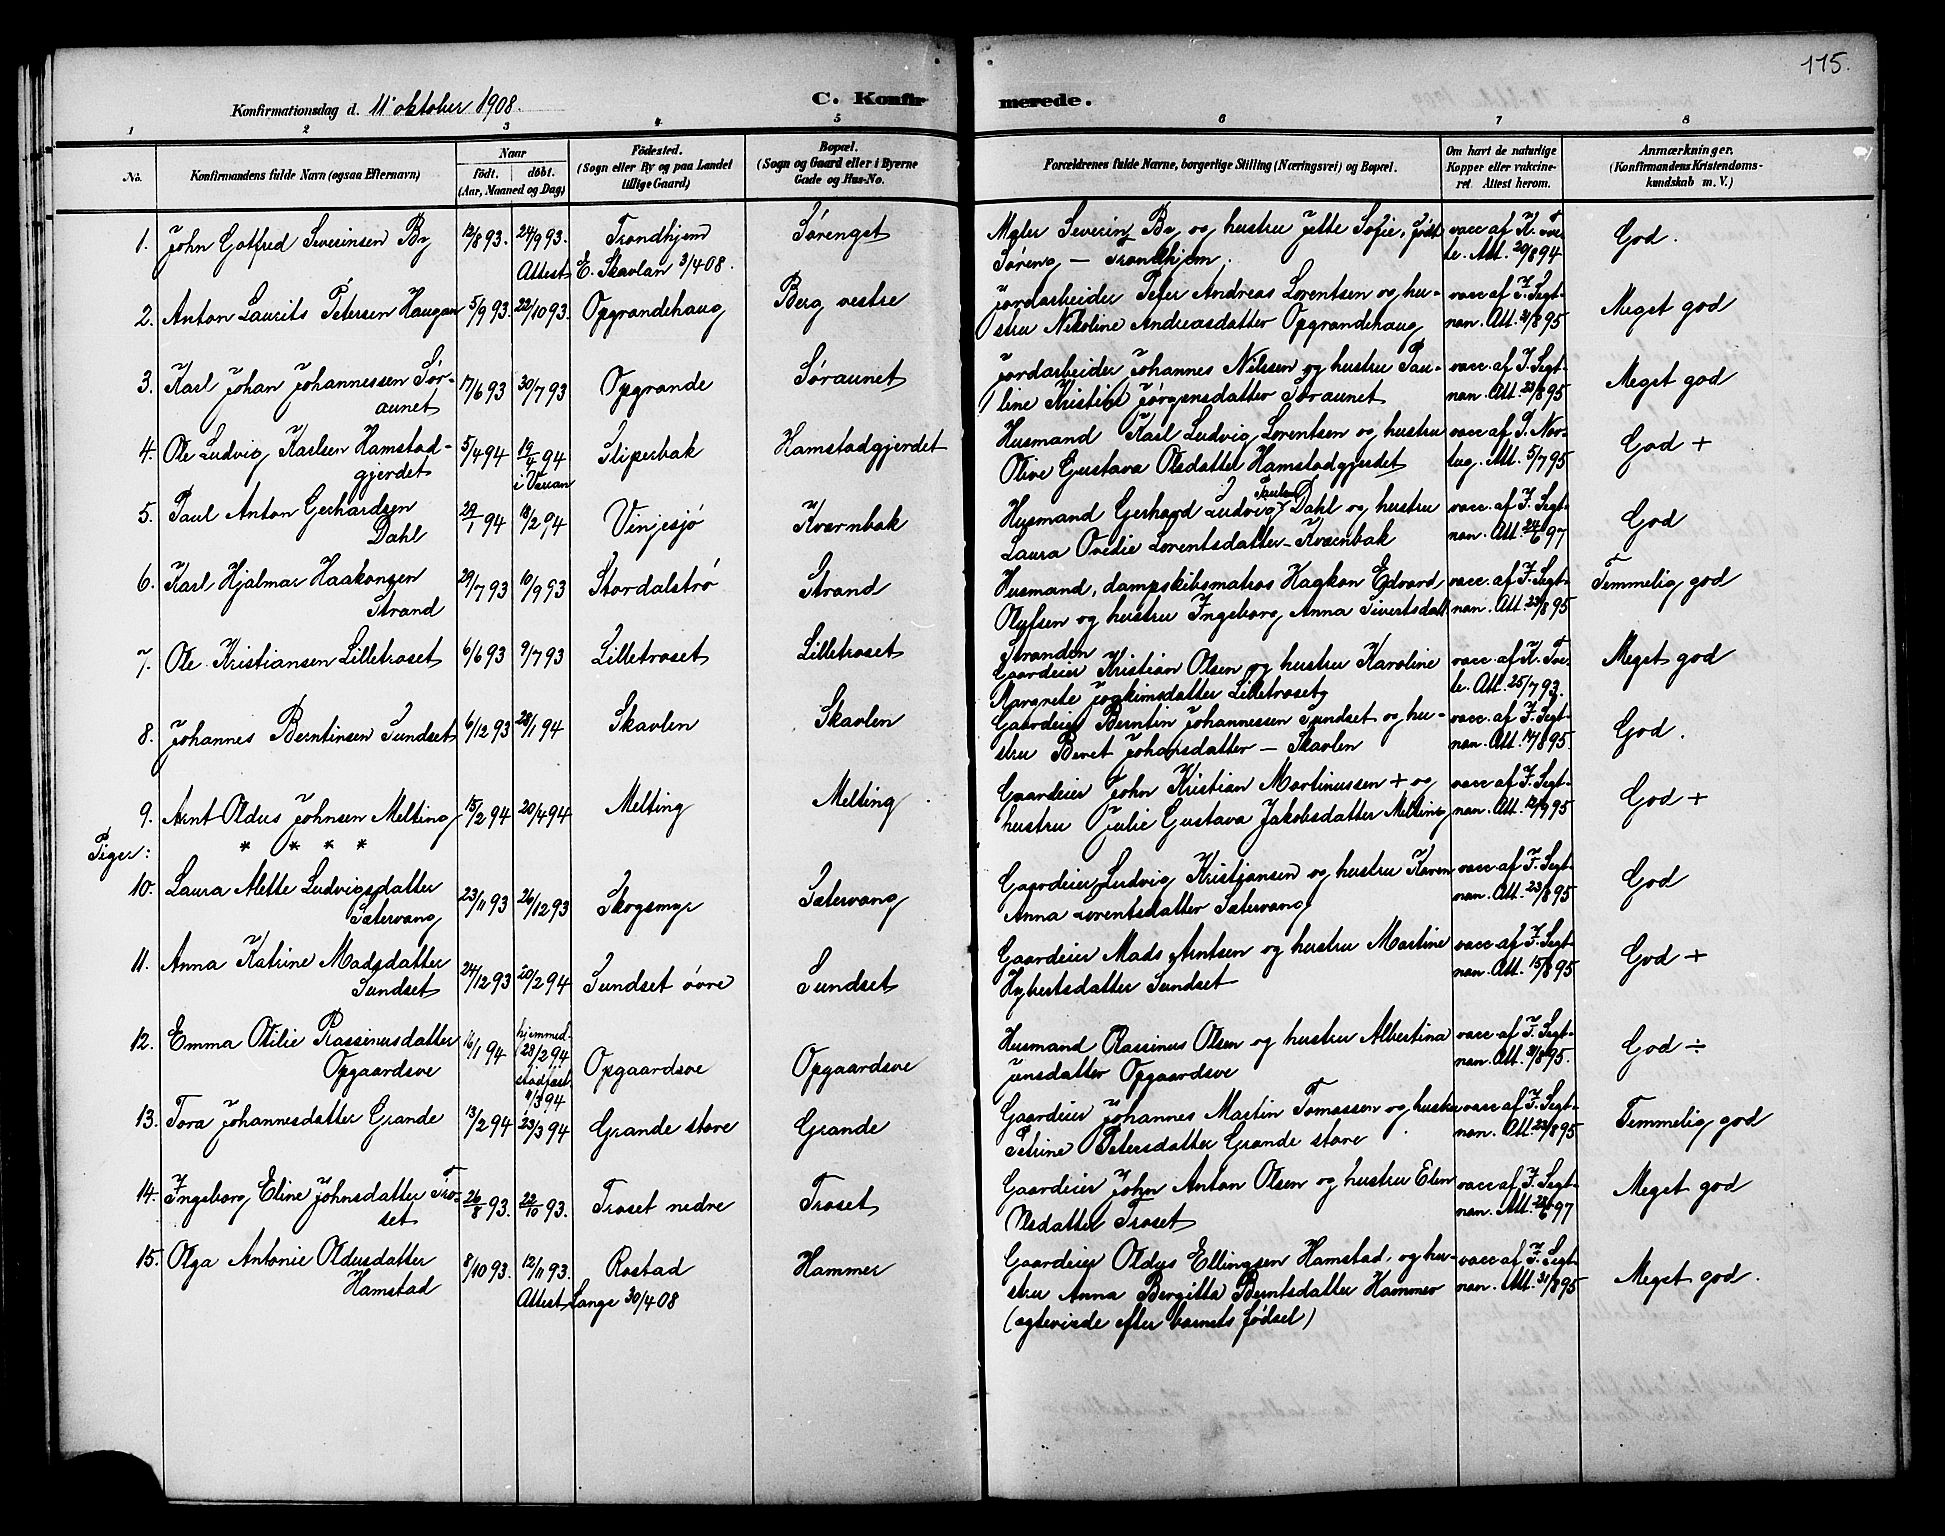 115.
Konfirmationsdag d. 11 oktober 1908.
C. Konfirmerede.
1 2 3 4 5 6 7 8
No.
Konfirmandens fulde Navn (ogsaa Efternavn)
Naar
födt. döbt.
(Aar, Maaned og Dag)
Födested.
(Sogn eller By og paa Landet
tillige Gaard)
Bopæl.
(Sogn og Gaard eller i Byerne
Gade og Hus-No.
Forældrenes fulde Navne, borgerlige Stilling (Næringsvei) og Bopæl.
Om havt de naturlige
Kopper eller vakcine-
ret. Attest herom.
Anmærkninger.
(Konfirmandens Kristendoms-
kundskab m. V.)
1. John Gotfred Severinsen By 12/8 93. 24/9 93. Trondhjem Sørenget Maler Severin By og hustru Jette Sofie, født vacc af K. Tve- God.
Attest E. Skavlan 3/4 08. Søreng — Trondhjem. te. Att. 20/8 94
2. Anton Laurits Petersen Haugan 5/9 93. 22/10 93. Opgrandehaug Berg vestre Jordarbeider Peter Andreas Lorentsen og hu- vacc af F. Segt- Meget god
stru Nikoline Andreasdatter Opgrandehaug nan. Att. 21/8 95
3. Karl Johan Johannessen Sør- 17/6 93 30/7 93 Opgrande Søraunet Jordarbeider Johannes Nilssen og hustru Pau- vacc. af F. Segt- Meget god
aunet line Kristine Jørgensdatter Søraunet nan. Att. 23/8 95
4. Ole Ludvig Karlsen Hamstad- 5/4 94 19/4 94 Sliperbak Hamstadgjerdet Husmand Karl Ludvig Lorentsen og hustru vacc af P. Nor- God +
gjerdet i Væran Olive Gustava Olsdatter Hamstadgjerdet tug. Att. 5/7 95
5. Paul Anton Gerhardsen 29/1 94 18/2 94 Vinjesjø Kvernbak Husmand Gerhard Ludvig Paulsen Dahl og hustru vacc. af F. Segt- God
Dahl Laura Ovedie Lorentsdatter - Kvernbak nan. Att. 24/6 97
6. Karl Hjalmar Haakonsen 29/7 93 10/9 93 Stordalstrø Strand Husmand, dampskibsmatros Haakon Edvard vacc. af F. Segt- Temmelig god
Strand Olufsen og hustru Ingeborg Anna Sivertsdatt nan. Att. 23/8 95
Stranden
7. Ole Kristiansen Lilletroset 6/6 93 9/7 93 Lilletroset Lilletroset Gaardeier Kristian Olsen og hustru Karoline vacc. af K. Tve- Meget god
Margrete Joakimsdatter Lilletroset te. Att. 25/7 93.
8. Johannes Berntinsen Sundset 6/12 93 28/1 94 Skavlen Skavlen Gaardeier Berntin Johannessen Sundset og hu- vacc. af F. Segt- God.
stru Beret Johansdatter — Skavlen nan. Att. 14/8 95.
9. Arnt Oldus Johnsen Melting 15/2 94 20/4 94 Melting Melting Gaardeier John Kristian Martinussen + og vacc af F. Segt- God +
hustru Julie Gustava Jakobsdatter Melting nan. Att. 12/9 95
Piger: * * * *
10. Laura Mette Ludvigsdatter 23/11 93 26/12 93 Skogsmyr Sætervang Gaardeier Ludvig Kristjansen og hustru Karen vacc af F. Segt- God
Sætervang Anna Lorentsdatter Sætervang nan. Att. 23/8 95
11. Anna Katrine Madsdatter 24/12 93 20/2 94 Sundset øvre Sundset Gaardeier Mads Arntsen og hustru Martine vacc af F. Segt- God +
Sundset Hybertsdatter Sundset nan. Att. 15/8 95
12. Emma Otilie Rassinusdatter 16/1 94 hjemmed. 23/2 94 stadfæst. 11/3 94 Opgaardsve Opgaardsve Husmand Rassinus Olsen og hustru Albertina vacc. af F. Segt- God ÷
Opgaardsve Jensdatter Opgaardsve nan. Att. 31/8 95.
13. Tora Johannesdatter Grande 13/2 94 23/3 94 Grande store Grande Gaardeier Johannes Martin Tomassen og hustru vacc af F. Segt- Temmelig god
Petrine Petersdatter Grande store nan. Att. 22/8 95
14. Ingeborg Eline Johnsdatter Tro- 26/8 93. 22/10 93. Troset nedre Troset Gaardeier John Anton Olsen og hustru Elen vacc af F. Segt- Meget god
set Olsdatter Troset nan. Att. 23/6 97
15. Olga Antonie Oldusdatter 8/10 93. 12/11 93. Rostad Hammer Gaardeier Oldus Ellingsen Hamstad, og hu- vacc. af F. Segt- Meget god.
Hamstad Attest Lange 30/4 08 stru Anna Bergitta Berntsdatter Hammer nan. Att. 31/8 95
(egteviede efter barnets fødsel)